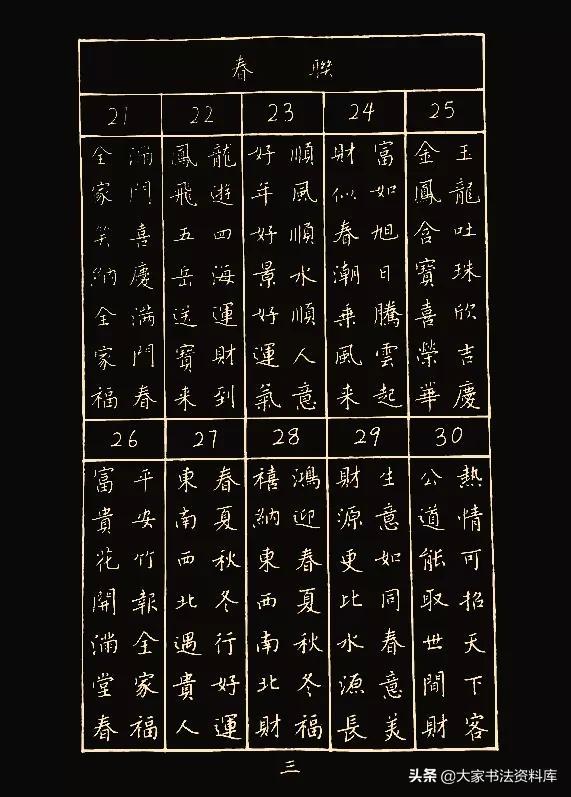 春聯
21
滿門喜慶滿門春
全家笑納全家福
22
龍遊四海運財到
鳳飛五岳送寶来
23
順風順水順人意
好年好景好運氣
24
富如旭日騰雲起
財似春潮乘風来
25
玉龍吐珠欣吉慶
金鳳含寶喜榮華
26
平安竹報全家福
富貴花開滿堂春
27
春夏秋冬行好運
東南西北遇貴人
28
鴻迎春夏秋冬福
禧納東西南北財
29
生意如同春意美
財源更比水源長
30
熱情可招天下客
公道能取世間財
三
头条 @大家书法资料库